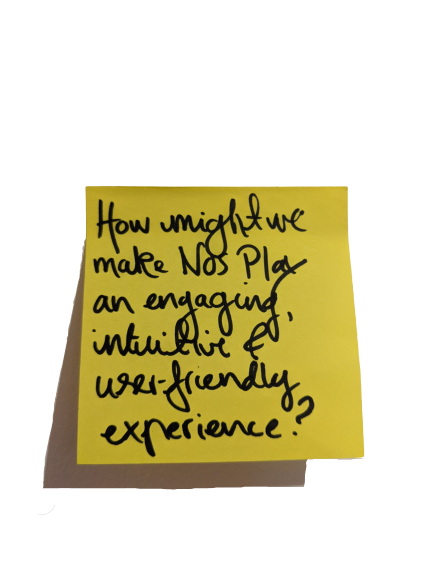 How might we
make Nos Play
an engaging,
intuitive &
user-friendly
experience?